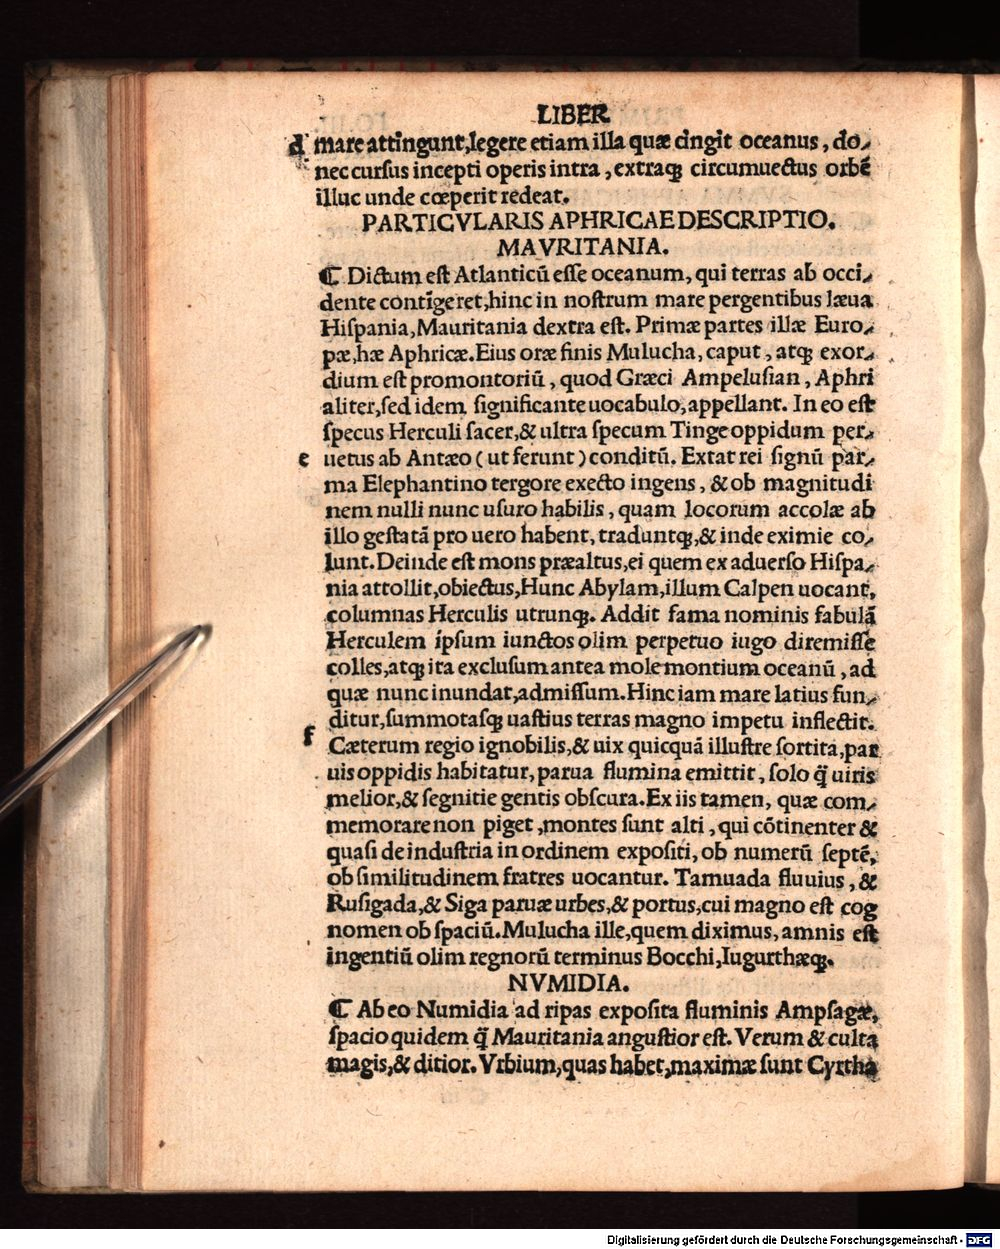 LIBER
d mare attingunt,legere etiam illa quæ cingit oceanus, do⸗
nec cursus incepti operis intra, extraqꝫ circumuectus orbẽ
illuc unde cœperit redeat.
PARTICVLARIS APHRICAE DESCRIPTIO.
MAVRITANIA.
⁋ Dictum est Atlanticũ esse oceanum, qui terras ab occi⸗
dente contĩgeret,hinc in nostrum mare pergentibus læua
Hispania,Mauritania dextra est. Primæ partes illæ Euro⸗
pæ,hæ Aphricæ.Eius oræ finis Mulucha, caput, atqꝫ exor⸗
dium est promontoriũ, quod Græci Ampelusian, Aphri
aliter,sed idem significante uocabulo,appellant. In eo est
specus Herculi sacer,& ultra specum Tinge oppidum per⸗
e uetus ab Antæo ( ut ferunt ) conditũ. Extat rei signũ par⸗
ma Elephantino tergore execto ingens, & ob magnitudi
nem nulli nunc usuro habilis, quam locorum accolæ ab
illo gestatã pro uero habent, traduntqꝫ,& inde eximie co⸗
lunt.Deinde est mons præaltus,ei quem ex aduerso Hispa⸗
nia attollit,obiectus,Hunc Abylam,illum Calpen uocant,
columnas Herculis utrunqꝫ. Addit fama nominis fabulã
Herculem ipsum iunctos olim perpetuo iugo diremisse
colles,atqꝫ ita exclusum antea mole montium oceanũ, ad
quæ nunc inundat,admissum.Hinc iam mare latius fun⸗
ditur,summotasqꝫ uastius terras magno impetu inflectit.
f Cæterum regio ignobilis,& uix quicquã illustre sortita,par
uis oppidis habitatur, parua flumina emittit, solo q̃ uiris
melior,& segnitie gentis obscura.Ex iis tamen, quæ com⸗
memorare non piget,montes sunt alti, qui cõtinenter &
quasi de industria in ordinem expositi, ob numerũ septẽ,
ob similitudinem fratres uocantur. Tamuada fluuius, &
Rusigada,& Siga paruæ urbes,& portus,cui magno est cog
nomen ob spaciũ.Mulucha ille,quem diximus, amnis est
ingentiũ olim regnorũ terminus Bocchi,Iugurthæqꝫ.
NVMIDIA.
⁋ Ab eo Numidia ad ripas exposita fluminis Ampsagæ,
spacio quidem q̃ Mauritania angustior est. Verum & culta
magis,& ditior. Vrbium,quas habet,maximæ sunt Cyrtha
Digitalisierung gefördert durch die Deutsche Forschungsgemeinschaft - DFG